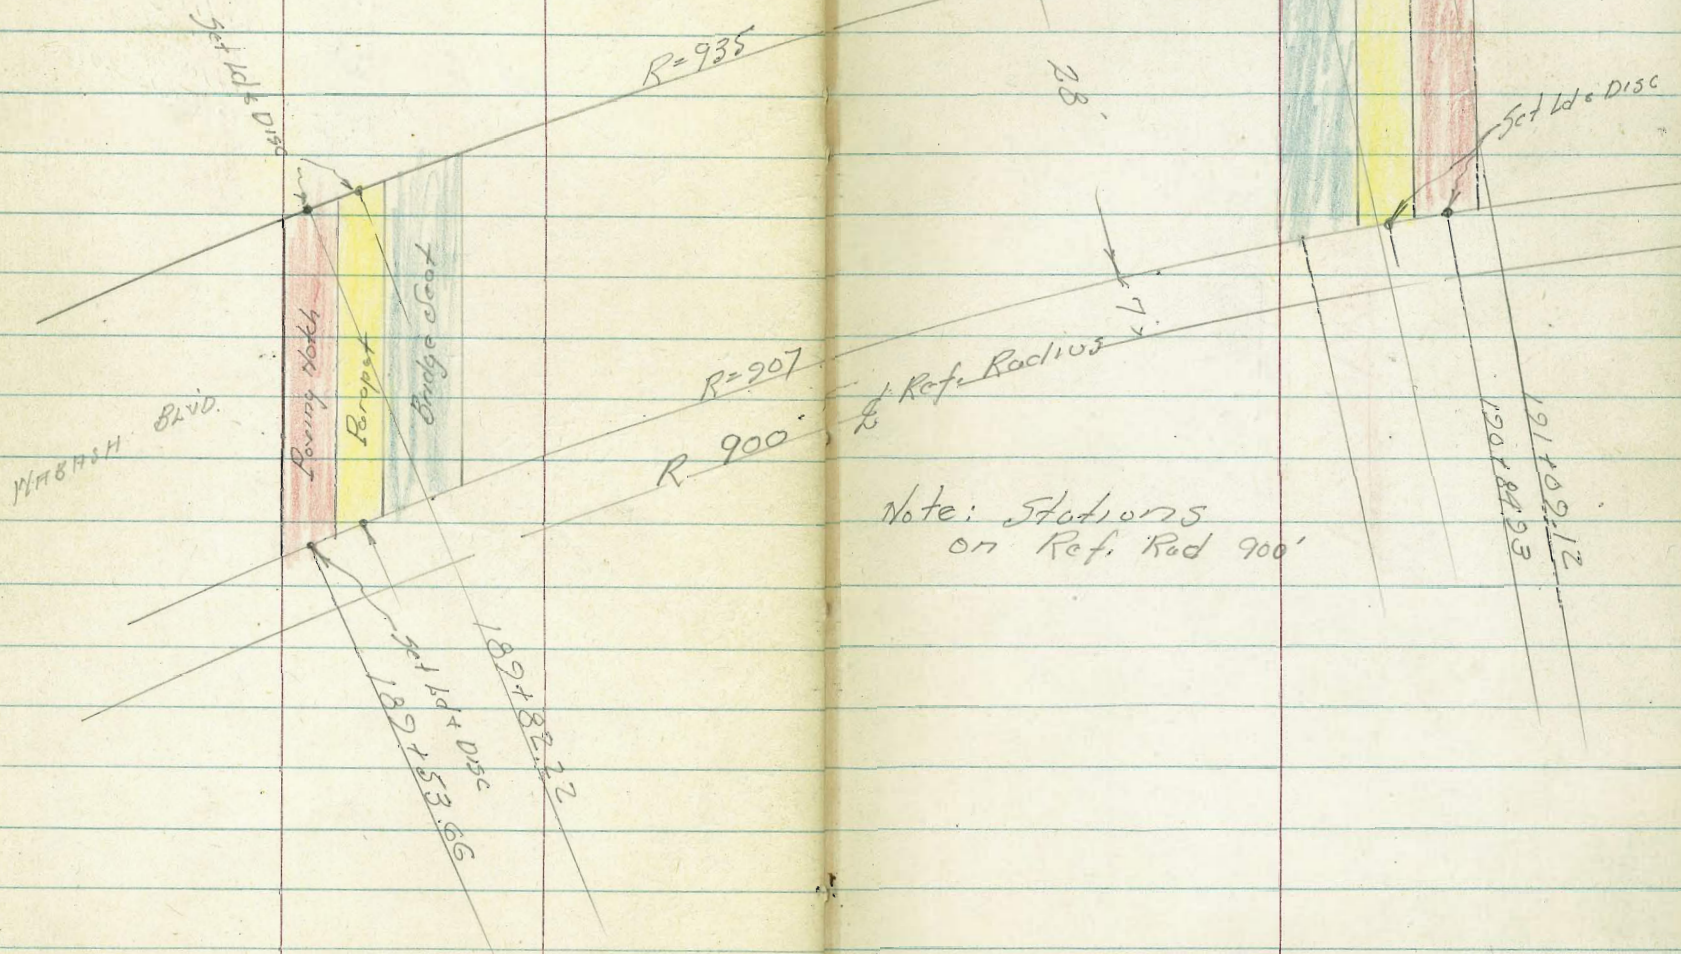 Set Ld & Disc
R=935
28'
Set Ld & Disc
Paving Notch
Parapet
Bridge Seat
WABASH BLVD.
R=907
7'
R 900
℄ Ref. Radius
Note: Stations
on Ref. Rad 900'
Set Ld & Disc
189+53.66
189+82.22
190+84.93
191+09.12